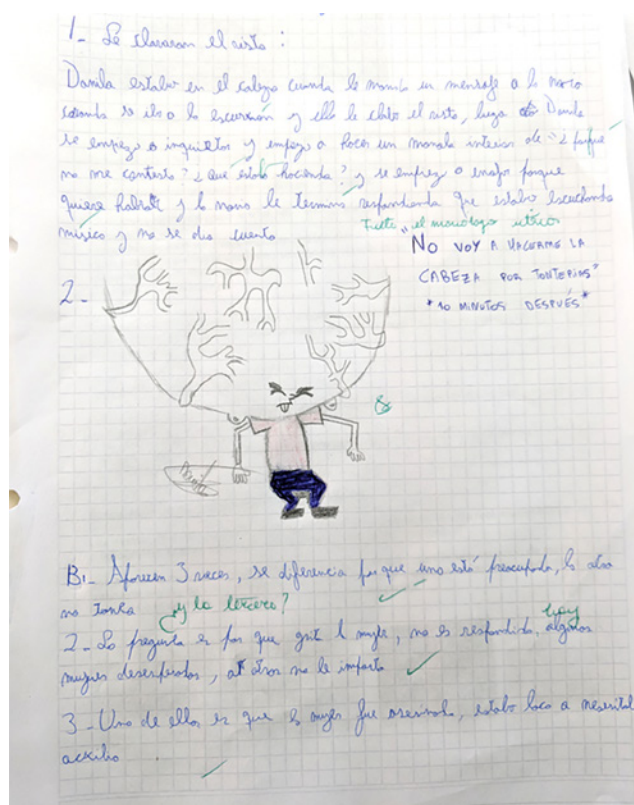 1- Le clavaron el visto :
Danila estaba en el colegio cuando le mando un mensaje a la
cuando se iba a la escursión y ella le clabo el visto, luego Danila
se empezo a inquietar y empezo a hacer un interior de "¿ porque
no me contesto? ¿ que estara haciendo? y se empezo a enojar porque
quiere hablar y la termino respondiendo que estaba escuchando
música y no se dio cuenta
Fuiste "el monólogo
NO VOY A HACERME LA
CABEZA POR TONTERIAS"
2-
*10 MINUTOS DESPUÉS*
B1- Aparecen 3 veces, se diferencia por que una está preocupada, la otra
no tanto ¿y la tercera?
2- La pregunta es por que grit la mujer, no es respondida, hay algunas
mujeres desesperadas, otros no le importa
3- Una de ellas es que la mujer fue asesinada, estaba loca o necesita
auxilio